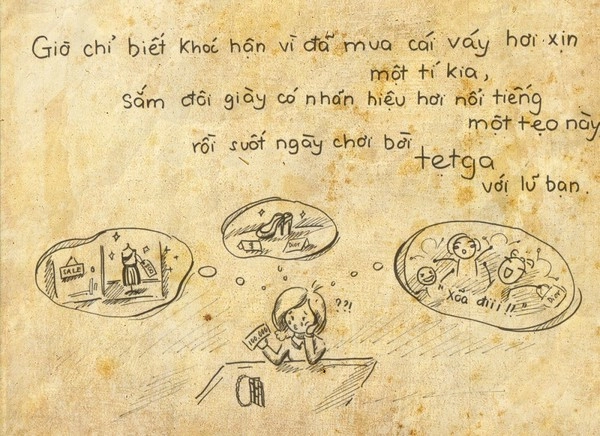 Giờ chỉ biết khóc hận vì đã mua cái váy hơi xịn
một tí kia,
sắm đôi giày có nhãn hiệu hơi nổi tiếng
một tẹo này
rồi suốt ngày chơi bời
tẹtga
với lũ bạn.
SALE
??!
"Xõa điii!!"
100.000